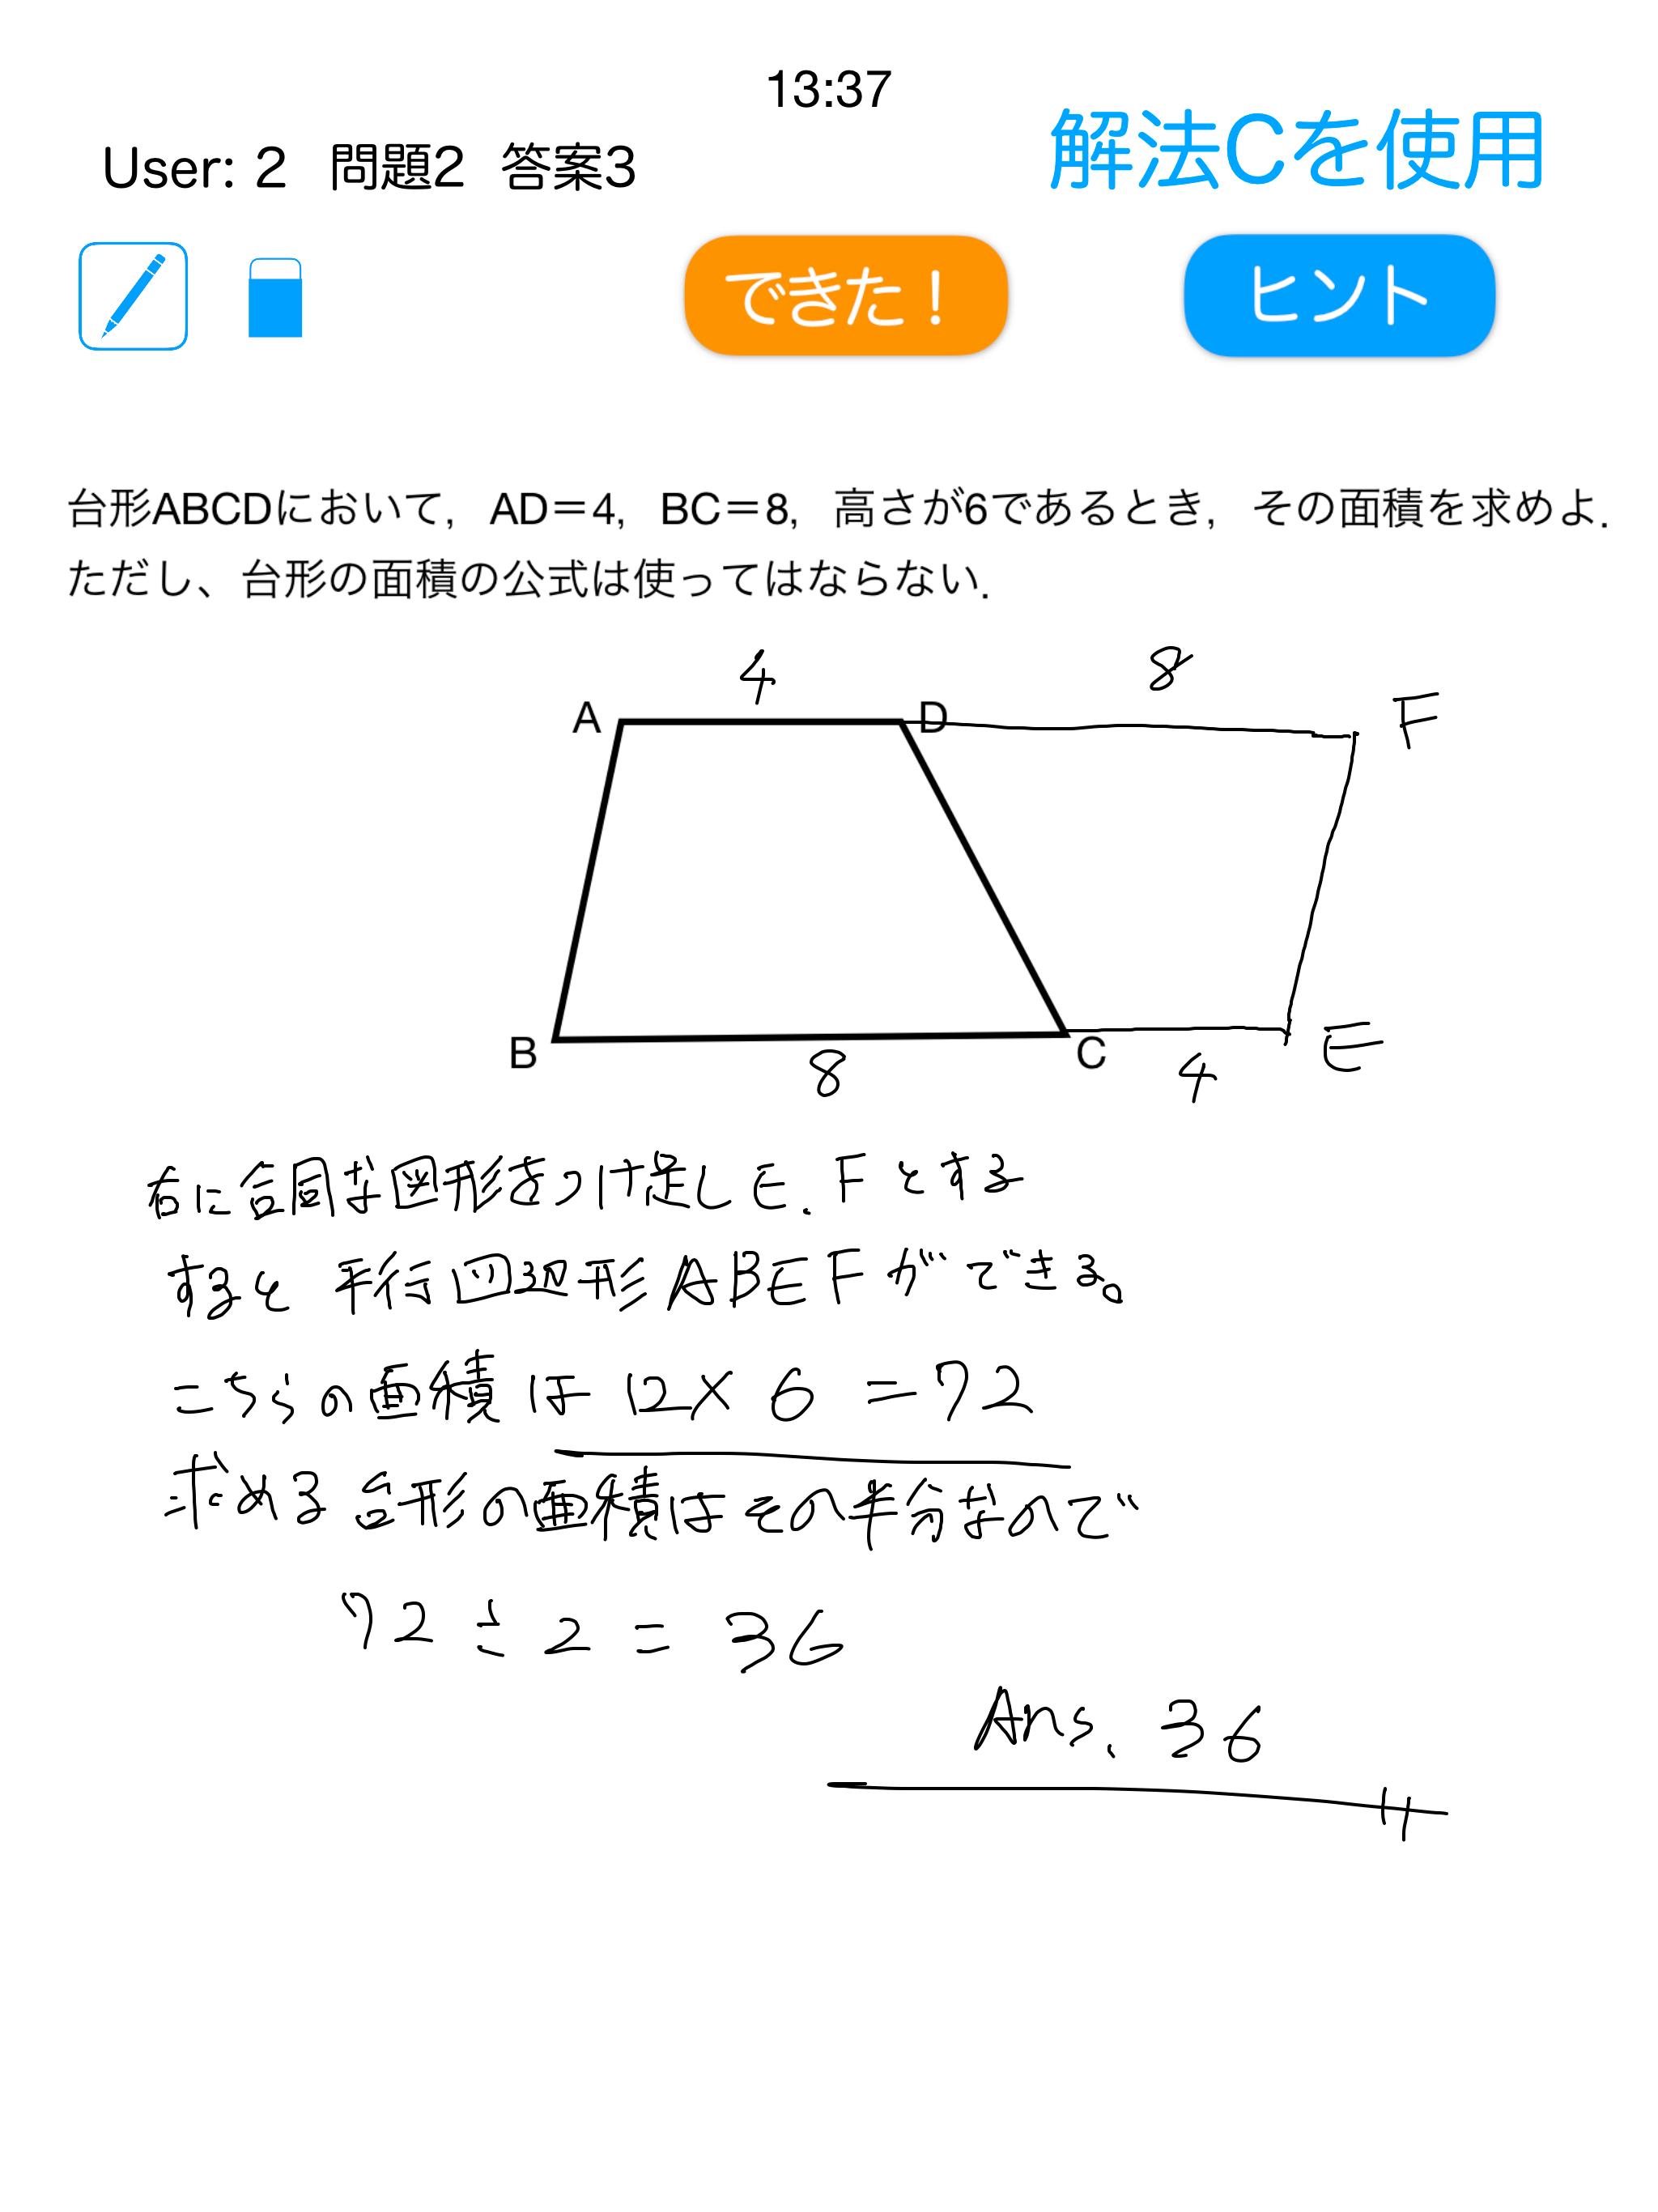 13:37
解法Cを使用
User: 2 問題2 答案3
できた！
ヒント
台形ABCDにおいて，AD＝4，BC＝8，高さが6であるとき，その面積を求めよ．
ただし、台形の面積の公式は使ってはならない．
4
8
A
D
F
B
C
E
8
4
右に合同な図形をつけ足しE.Fとする
すると平行四辺形ABEFができる。
こちらの面積は12×6=72
求める台形の面積はその半分なので
72÷2=36
Ans. 36